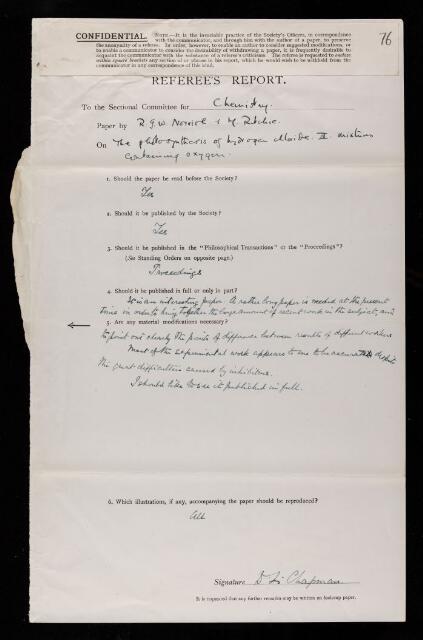 76
CONFIDENTIAL. NOTE.—It is the invariable practice of the Society's Officers, in correspondence
with the communicator, and through him with the author of a paper, to preserve
the anonymity of a referee. In order, however, to enable an author to consider suggested modifications, or
to enable a communicator to consider the desirability of withdrawing a paper, it is frequently desirable to
acquaint the communicator with the substance of a referee's criticisms. The referee is requested to enclose
within square brackets any section of or phrase in his report, which he would wish to be withheld from the
communicator in any correspondence of this kind.
REFEREE'S REPORT.
To the Sectional Committee for Chemistry.
Paper by R.G.W. Norrish & M. Ritchie.
On The photosynthesis of hydrogen chloride. II. mixtures
containing oxygen.
1. Should the paper be read before the Society?
Yes
2. Should it be published by the Society?
Yes
3. Should it be published in the "Philosophical Transactions" or the "Proceedings"?
(See Standing Orders on opposite page.)
Proceedings
4. Should it be published in full or only in part?
It is an interesting paper. A rather long paper is needed at the present
time in order to bring together the large amount of recent work in the subject, and
5. Are any material modifications necessary?
to point out clearly the points of difference between results of different workers
Most of the experimental work appears to me to be accurate despite
the great difficulties caused by inhibitions.
I should like to see it published in full.
6. Which illustrations, if any, accompanying the paper should be reproduced?
All
Signature D. L. Chapman
It is requested that any further remarks may be written on foolscap paper.